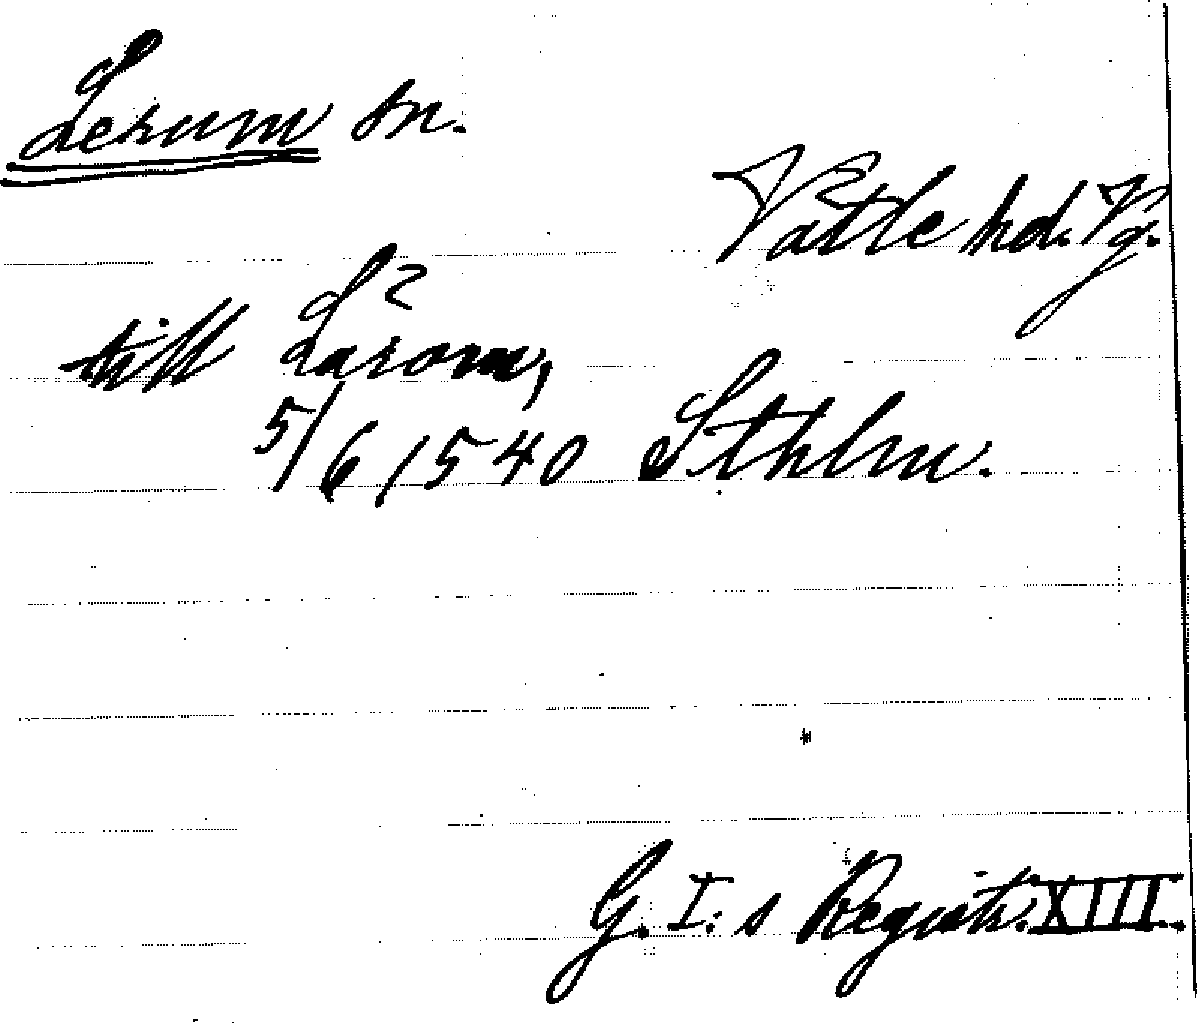 Lerum sn.
Vättle hd. Vg.
till Larom,
5/6 1540 Sthlm.
G. I:s Registr. XIII.